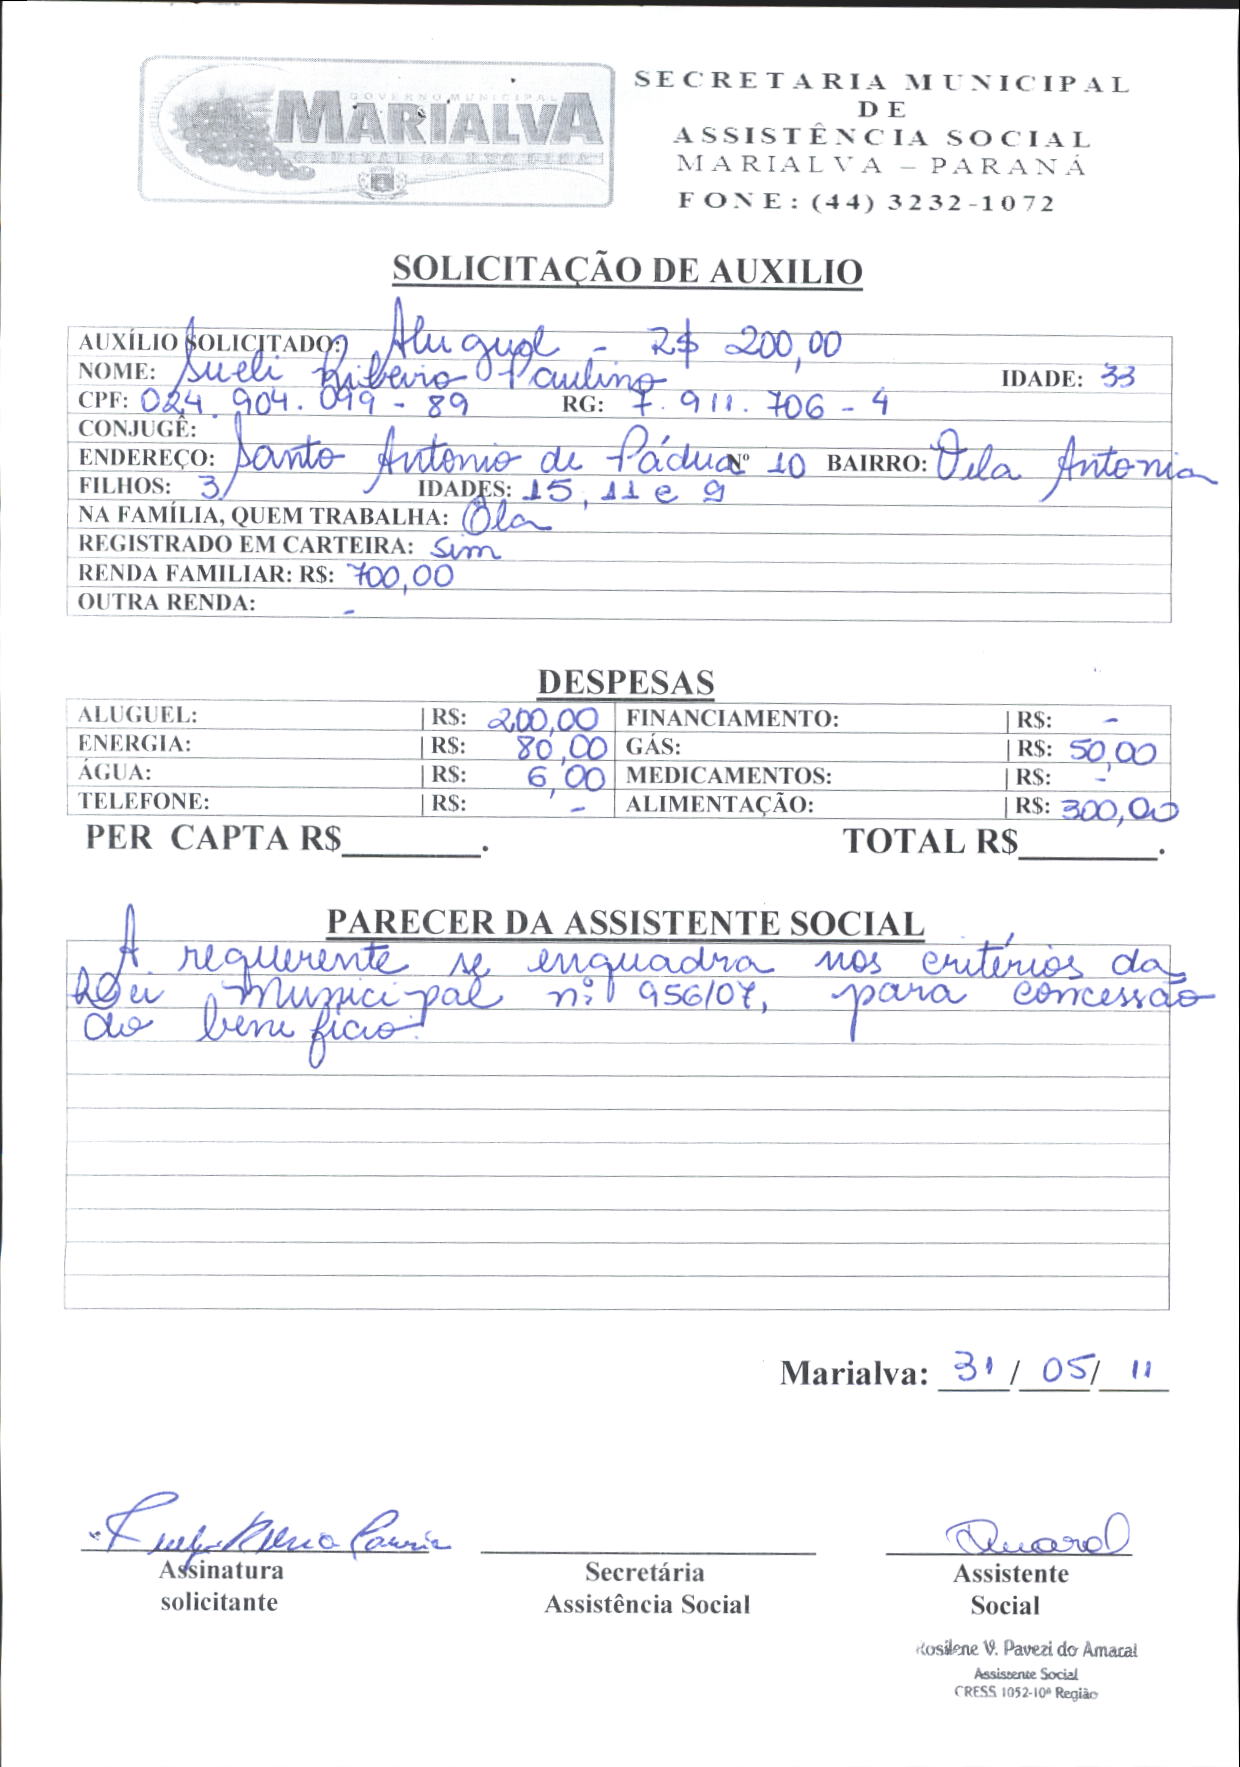 GOVERNO MUNICIPAL
MARIALVA
CAPITAL DA UVA FINA
SECRETARIA MUNICIPAL
DE
ASSISTÊNCIA SOCIAL
MARIALVA – PARANÁ
FONE: (44) 3232-1072
SOLICITAÇÃO DE AUXILIO
AUXÍLIO SOLICITADO: Aluguel - R$ 200,00
NOME: Sueli Ribeiro Paulino IDADE: 33
CPF: 024.904.099-89 RG: 7.911.706-4
CONJUGÊ:
ENDEREÇO: Santo Antonio de Pádua Nº 10 BAIRRO: Vila Antonia
FILHOS: 3 IDADES: 15, 11 e 9
NA FAMÍLIA, QUEM TRABALHA: Ela
REGISTRADO EM CARTEIRA: Sim
RENDA FAMILIAR: R$: 700,00
OUTRA RENDA: -
DESPESAS
ALUGUEL: | R$: 200,00 FINANCIAMENTO: | R$: -
ENERGIA: | R$: 80,00 GÁS: | R$: 50,00
ÁGUA: | R$: 6,00 MEDICAMENTOS: | R$: -
TELEFONE: | R$: - ALIMENTAÇÃO: | R$: 300,00
PER CAPTA R$________. TOTAL R$________.
PARECER DA ASSISTENTE SOCIAL
A requerente se enquadra nos critérios da
Lei Municipal nº 956/07, para concessão
do benefício.
Marialva: 31 / 05 / 11
Assinatura Secretária Assistente
solicitante Assistência Social Social
Rosilene V. Pavezi do Amaral
Assistente Social
CRESS 1052-10ª Região